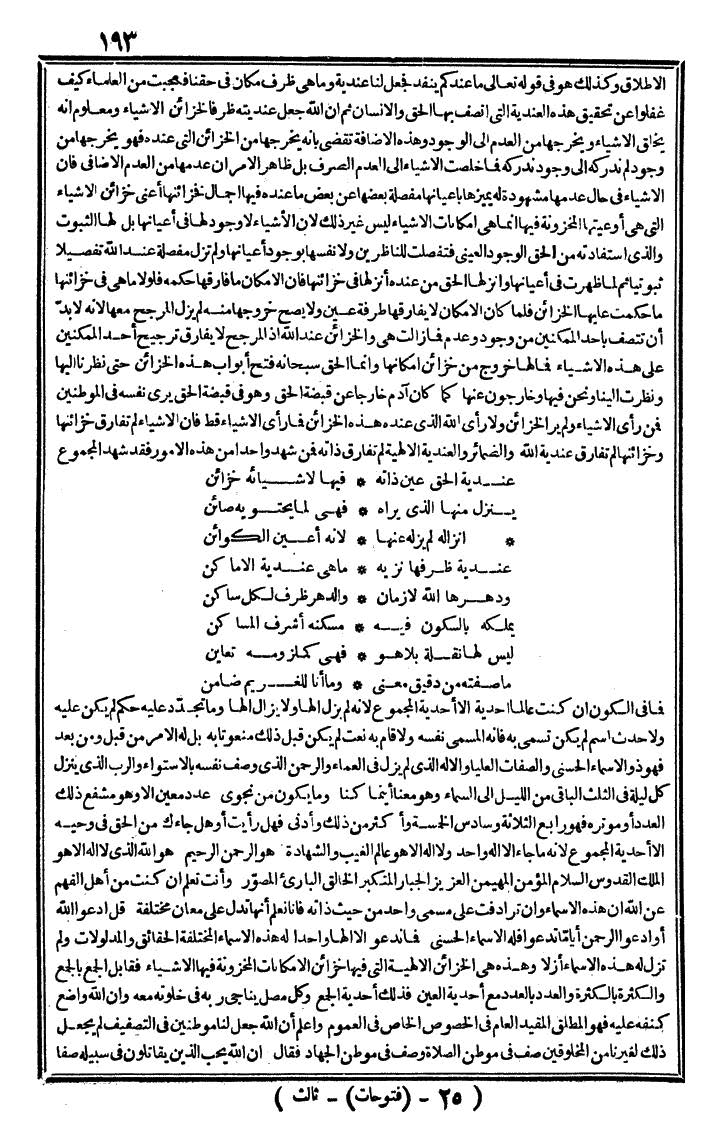 ١٩٣
الاطلاق وكذلك هو في قوله تعالى ما عندكم ينفد فجعل لنا عندية وما هي ظرف مكان في حقنا فعجبت من العلماء كيف
غفلوا عن تحقيق هذه العندية التي اتصف بها الحق والانسان ثم ان الله جعل عنديته ظرفا لخزائن الاشياء ومعلوم انه
يخلق الاشياء ويخرجها من العدم الى الوجود وهذه الاضافة تقضى بانه يخرجها من الخزائن التي عنده فهو يخرجها من
وجود لم ندركه الى وجود ندركه فما خلصت الاشياء الى العدم الصرف بل ظاهر الامر ان عدمها من العدم الاضافى فان
الاشياء في حال عدمها مشهودة له يميزها باعيانها مفصلة بعضها عن بعض ما عنده فيها اجمال نفزائنها أعنى خزائن الاشياء
التي هي أوعيتها المخزونة فيها انما هي امكانات الاشياء ليس غير ذلك لان الأشياء لا وجود لها في أعيانها بل لها الثبوت
والذى استفادته من الحق الوجود العينى فتفصلت للناظرين ولا نفسها بوجود أعيانها ولم تزل مفصلة عند الله تفصيلا
ثبوتيا ثم لما ظهرت في أعيانها وانزلها الحق من عنده أنزلها في خزائنها فان الامكان ما فارقها حكمه فلولا ما هي في خزائنها
ما حكمت عليها الخزائن فلما كان الامكان لا يفارقها طرفة عين ولا يصح خروجها منه لم يزل المرجح معها لانه لا بدّ
أن تتصف باحد الممكنين من وجود وعدم فما زالت هي والخزائن عند الله اذ المرجح لا يفارق ترجيح أحد الممكنين
على هذه الاشياء فما لها خروج من خزائن امكانها وانما الحق سبحانه فتح أبواب هذه الخزائن حتى نظرنا اليها
ونظرت الينا ونحن فيها وخارجون عنها كما كان آدم خارجا عن قبضة الحق وهو في قبضة الحق يرى نفسه في الموطنين
فمن رأى الاشياء ولم ير الخزائن ولا رأى الله الذى عنده هذه الخزائن فما رأى الاشياء قط فان الاشياء لم تفارق خزائنها
وخزائنها لم تفارق عندية الله والضمائر والعندية الالهية لم تفارق ذاته فمن شهد واحدا من هذه الامور فقد شهد المجموع
عندية الحق عين ذاته * فيها لاشيائه خزائن
ينزل منها الذى يراه * فهى لما يحتويه صائن
* انزاله لم يزله عنها * لانه أعين الكوائن
عندية ظرفها نزيه * ما هي عندية الاماكن
ودهرها الله لا زمان * والدهر ظرف لكل ساكن
يملكه بالسكون فيه * مسكنه أشرف المساكن
ليس لها نقلة بلاهو * فهى كملزومه تعاين
ما صفته من دقيق معنى * وما أنا للغريم ضامن
فما في الكون ان كنت عالما احدية الا أحدية المجموع لانه لم يزل الها ولا يزال الها وما تجدّد عليه حكم لم يكن عليه
ولا حدث اسم لم يكن تسمى به فانه المسمى نفسه ولا قام به نعت لم يكن قبل ذلك منعوتا به بل له الامر من قبل ومن بعد
فهو ذو الاسماء الحسنى والصفات العليا والاله الذى لم يزل في العماء والرحمن الذى وصف نفسه بالاستواء والرب الذى ينزل
كل ليلة في الثلث الباقى من الليل الى السماء وهو معنا أينما كنا وما يكون من نجوى عدد معين الا وهو مشفع ذلك
العدد أو موتره فهو رابع الثلاثة وسادس الخمسة وأكثر من ذلك وأدنى فهل رأيت أو هل جاءك من الحق في وحيه
الا أحدية المجموع لانه ما جاء الا اله واحد ولا اله الا هو عالم الغيب والشهادة هو الرحمن الرحيم هو الله الذى لا اله الا هو
الملك القدوس السلام المؤمن المهيمن العزيز الجبار المتكبر الخالق البارئ المصوّر وأنت تعلم ان كنت من أهل الفهم
عن الله ان هذه الاسماء وان ترادفت على مسمى واحد من حيث ذاته فانا نعلم أنها تدل على معان مختلفة قل ادعوا الله
أو ادعوا الرحمن أياما تدعوا فله الاسماء الحسنى فما ندعو الا الها واحدا له هذه الاسماء المختلفة الحقائق والمدلولات ولم
تزل له هذه الاسماء أزلا وهذه هي الخزائن الالهية التي فيها خزائن الامكانات المخزونة فيها الاشياء فقابل الجمع بالجمع
والكثرة بالكثرة والعدد بالعدد مع أحدية العين فذلك أحدية الجمع وكل مصل يناجى ربه في خلوته معه وان الله واضع
كنفه عليه فهو المطلق المقيد العام في الخصوص الخاص في العموم واعلم أن الله جعل لنا موطنين في التصفيف لم يجعل
ذلك لغيرنا من المخلوقين صف في موطن الصلاة وصف في موطن الجهاد فقال ان الله يحب الذين يقاتلون في سبيله صفا
( ٢٥ - (فتوحات) - ثالث )